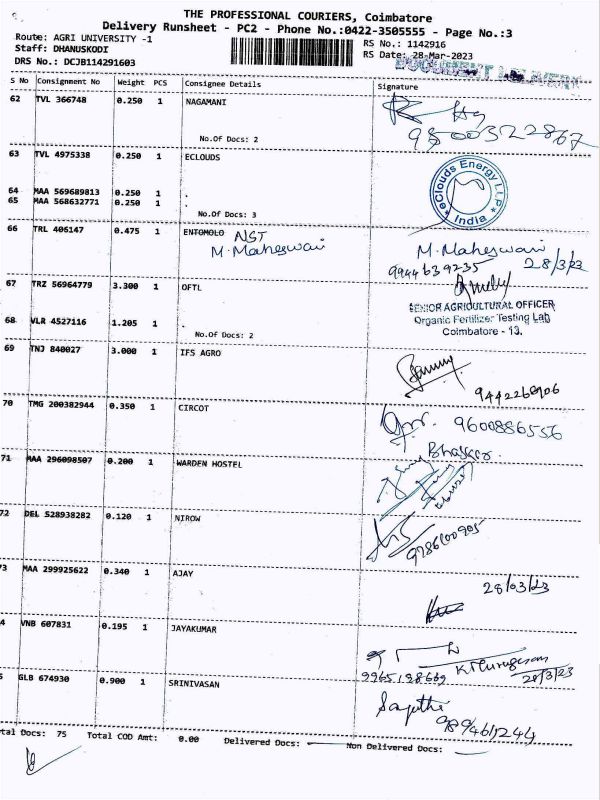 THE PROFESSIONAL COURIERS, Coimbatore
Delivery Runsheet - PC2 - Phone No.:0422-3505555 - Page No.:3
Route: AGRI UNIVERSITY -1
RS No.: 1142916
Staff: DHANUSKODI
RS Date: 28-Mar-2023
DRS No.: DCJB114291603
S No Consignment No Weight PCS Consignee Details Signature
62 TVL 366748 0.250 1 NAGAMANI
9500322867
No.Of Docs: 2
63 TVL 4975338 0.250 1 ECLOUDS
eClouds Energy LLP
India
64 MAA 569689813 0.250 1 .
65 MAA 568632771 0.250 1 .
No.Of Docs: 3
66 TRL 406147 0.475 1 ENTOMOLO NST
M. Maheswari M. Maheswari
9944639235 28/3/23
67 TRZ 56964779 3.300 1 OFTL
SENIOR AGRICULTURAL OFFICER
Organic Fertilizer Testing Lab
Coimbatore - 13.
68 VLR 4527116 1.205 1 .
No.Of Docs: 2
69 TNJ 840027 3.000 1 IFS AGRO
9442260906
70 TMG 200382944 0.350 1 CIRCOT
9600886556
Bhasker
71 MAA 296098507 0.200 1 WARDEN HOSTEL
72 DEL 528938282 0.120 1 NIROW
9786100905
3 MAA 299925622 0.340 1 AJAY
28/03/23
4 VNB 607831 0.195 1 JAYAKUMAR
9965198669 K Murugesan
28/3/23
GLB 674930 0.900 1 SRINIVASAN
Sajithi
tal Docs: 75 Total COD Amt: 0.00 Delivered Docs: Non Delivered Docs: